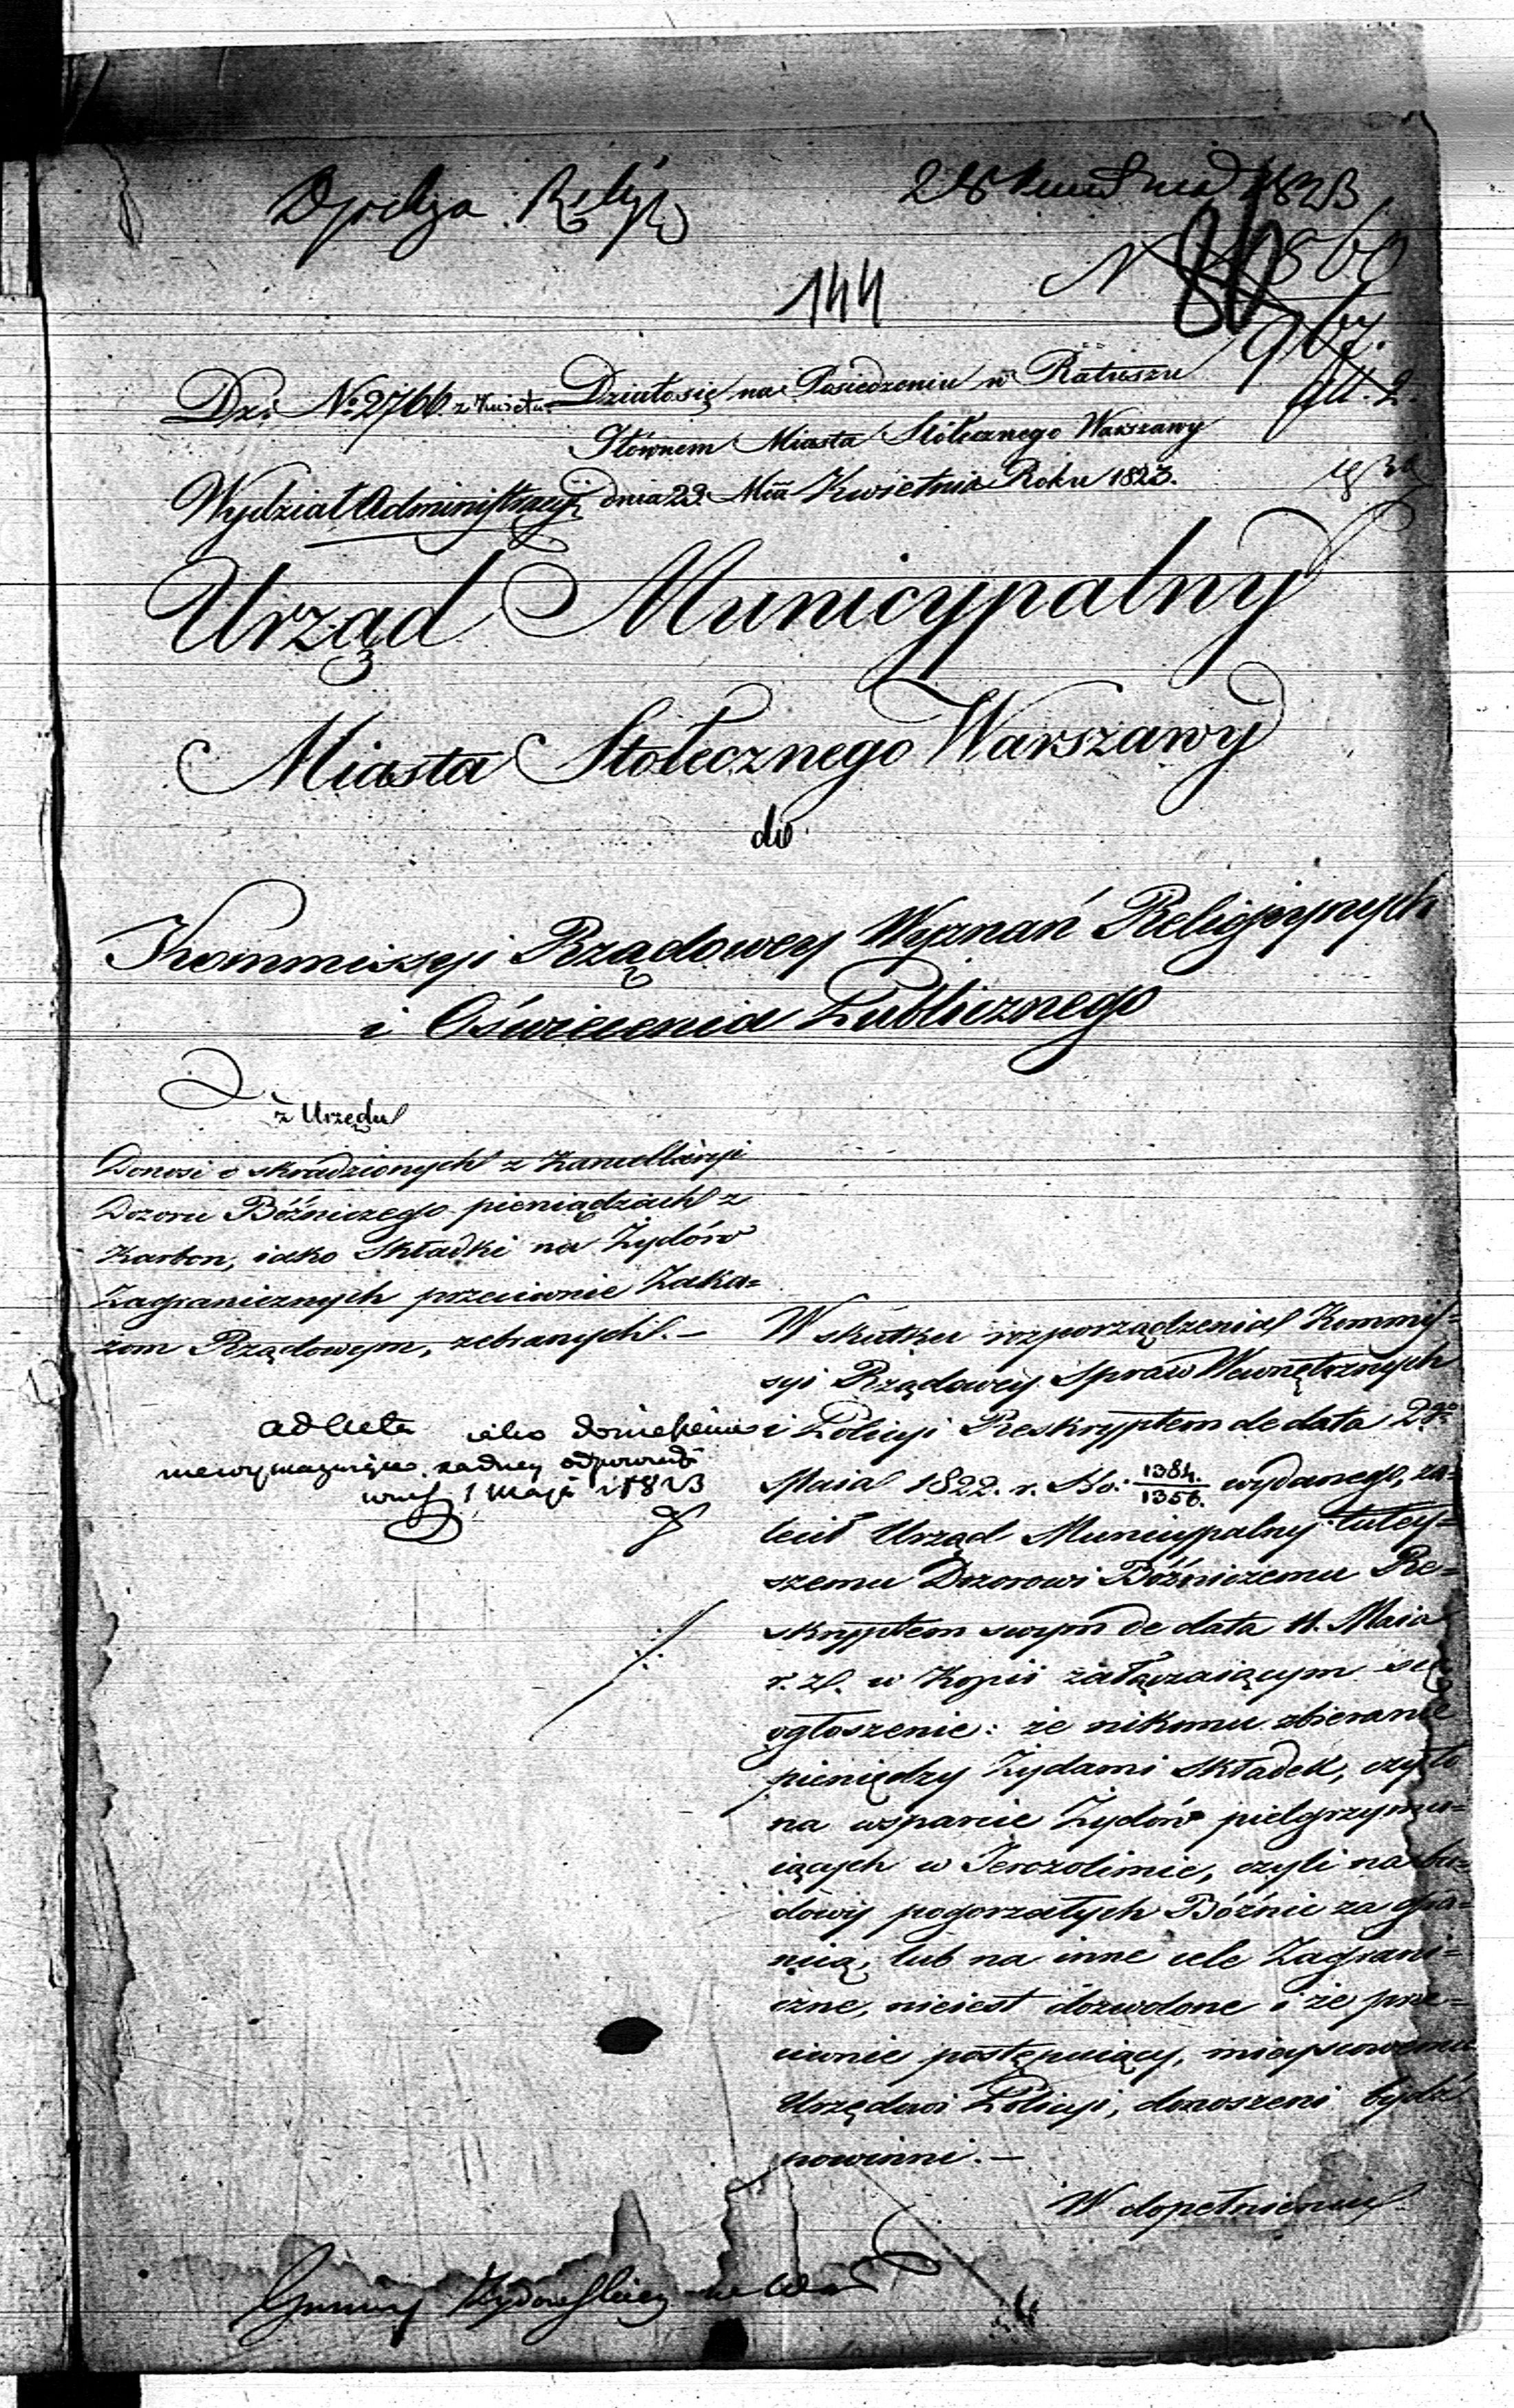 28 1823
144
86
967.
Dzi: No. 2766 z Kwietn.
Działo się na Posiedzeniu w Ratuszu
Głównem Miasta Stołecznego Warszawy
Wydział Administracyi dnia 23. Mca Kwietnia Roku 1823.
Urząd Municypalny
Miasta Stołecznego Warszawy
do
Kommissyi Rządowey Wyznań Religiynych
i Oświecenia Publicznego
z Urzędu
Donosi o skradzionych z Kancellaryi
Dozoru Bóźniczego pieniądzach z
Karbon, iako Składki na Żydów
Zagranicznych przeciwnie Zaka=
zom Rządowym, zebranych. —
ad acta iako doniesienie
niewymagaiące żadney odpowiedzi
1 Maja 1823
W skutku rozporządzenia Kommis=
syi Rządowey Spraw Wewnętrznych
i Policyi Reskryptem de data 2go
Maia 1822. r. No. 1384./1356. wydanego, za=
lecił Urząd Municypalny tutey=
szemu Dozorowi Bóźniczemu Re=
skryptem swym de data 11. Maia
r. z. w Kopii załączaiącym się
ogłoszenie: że nikomu zbieranie
pieniędzy Żydami Składek, czy to
na wsparcie Żydów pielgrzymu=
iących w Jerozolimie, czyli na bu=
dowy pogorzałych Bóźnic za gra=
nicą, lub na inne cele Zagrani=
czne, nieiest dozwolone i że prze=
ciwnie postępuiący, mieyscowemu
Urzędowi Policyi, donoszeni bydź
powinni. —
W dopełnieniu
Gminy Żydowskiey